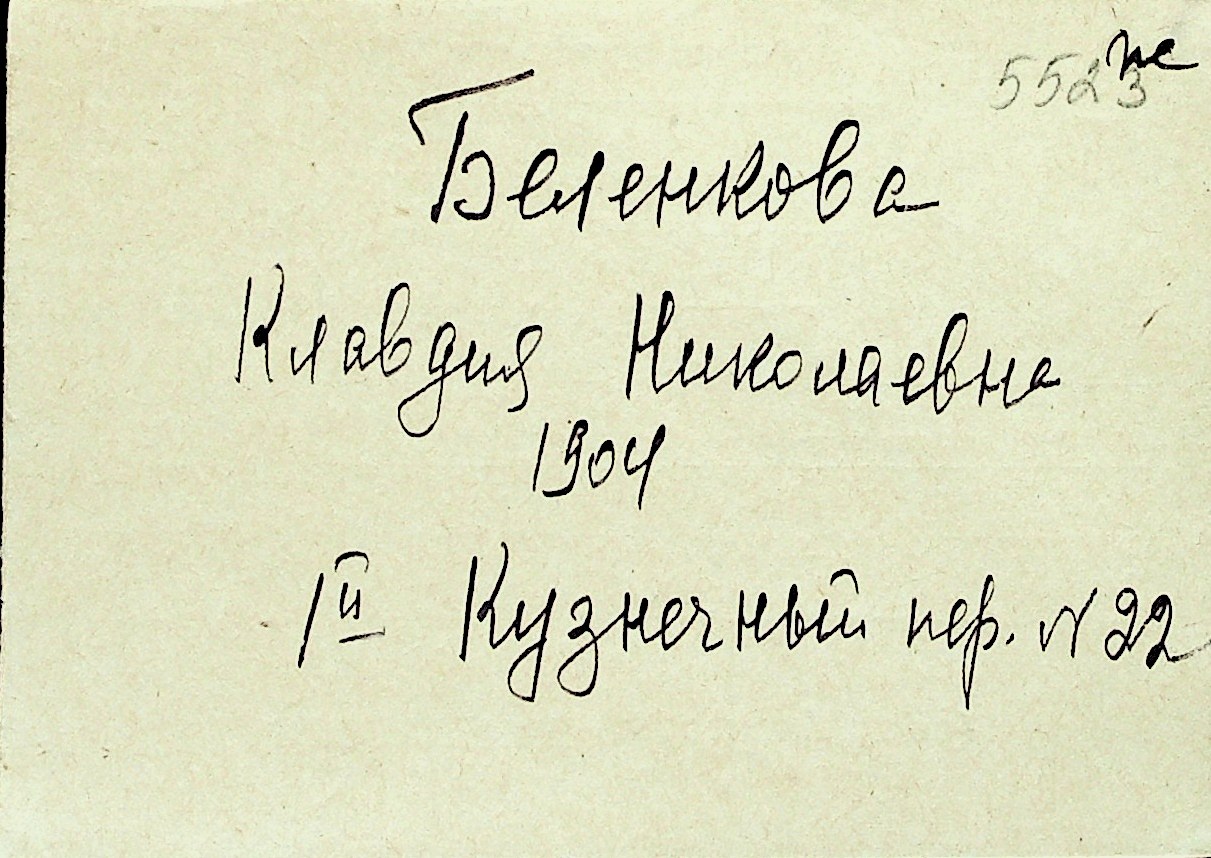 5523 пе
Беленкова
Клавдия Николаевна
1904
1й Кузнечный пер. №22